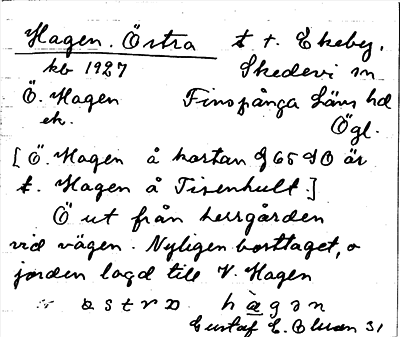 Hagen. Östra t t. Ekeby,
kb 1927 Skedevi sn
Ö. Hagen Finspånga läns hd
ek. Ögl.
[Ö. Hagen å kartan är
t. Hagen å Tisenhult.]
Ö ut från herrgården
vid vägen. Nyligen borttaget, o
jorden lagd till V. Hagen
östra hàgən
Gustaf E. Olsson 31